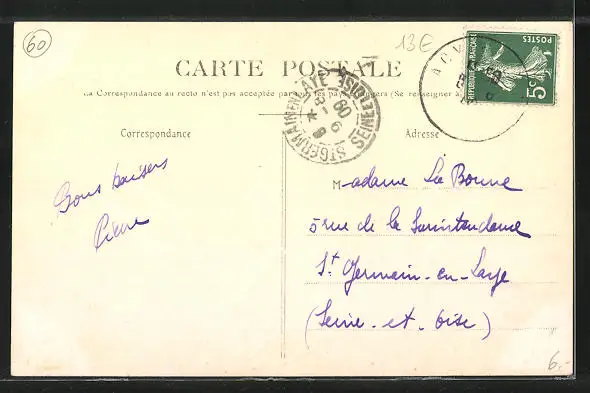 60
13€
CARTE POSTALE
La Correspondance au recto n'est pas acceptée par tous les pays étrangers (Se renseigner à
Correspondance
Adresse
REPUBLIQUE FRANÇAISE
POSTES
5c
ST GERMAIN EN LAYE
SEINE ET OISE
Bons baisers
Pierre
Madame La Bonne
5 rue de la Surintendance
St Germain-en-Laye
(Seine-et-Oise)
6.-